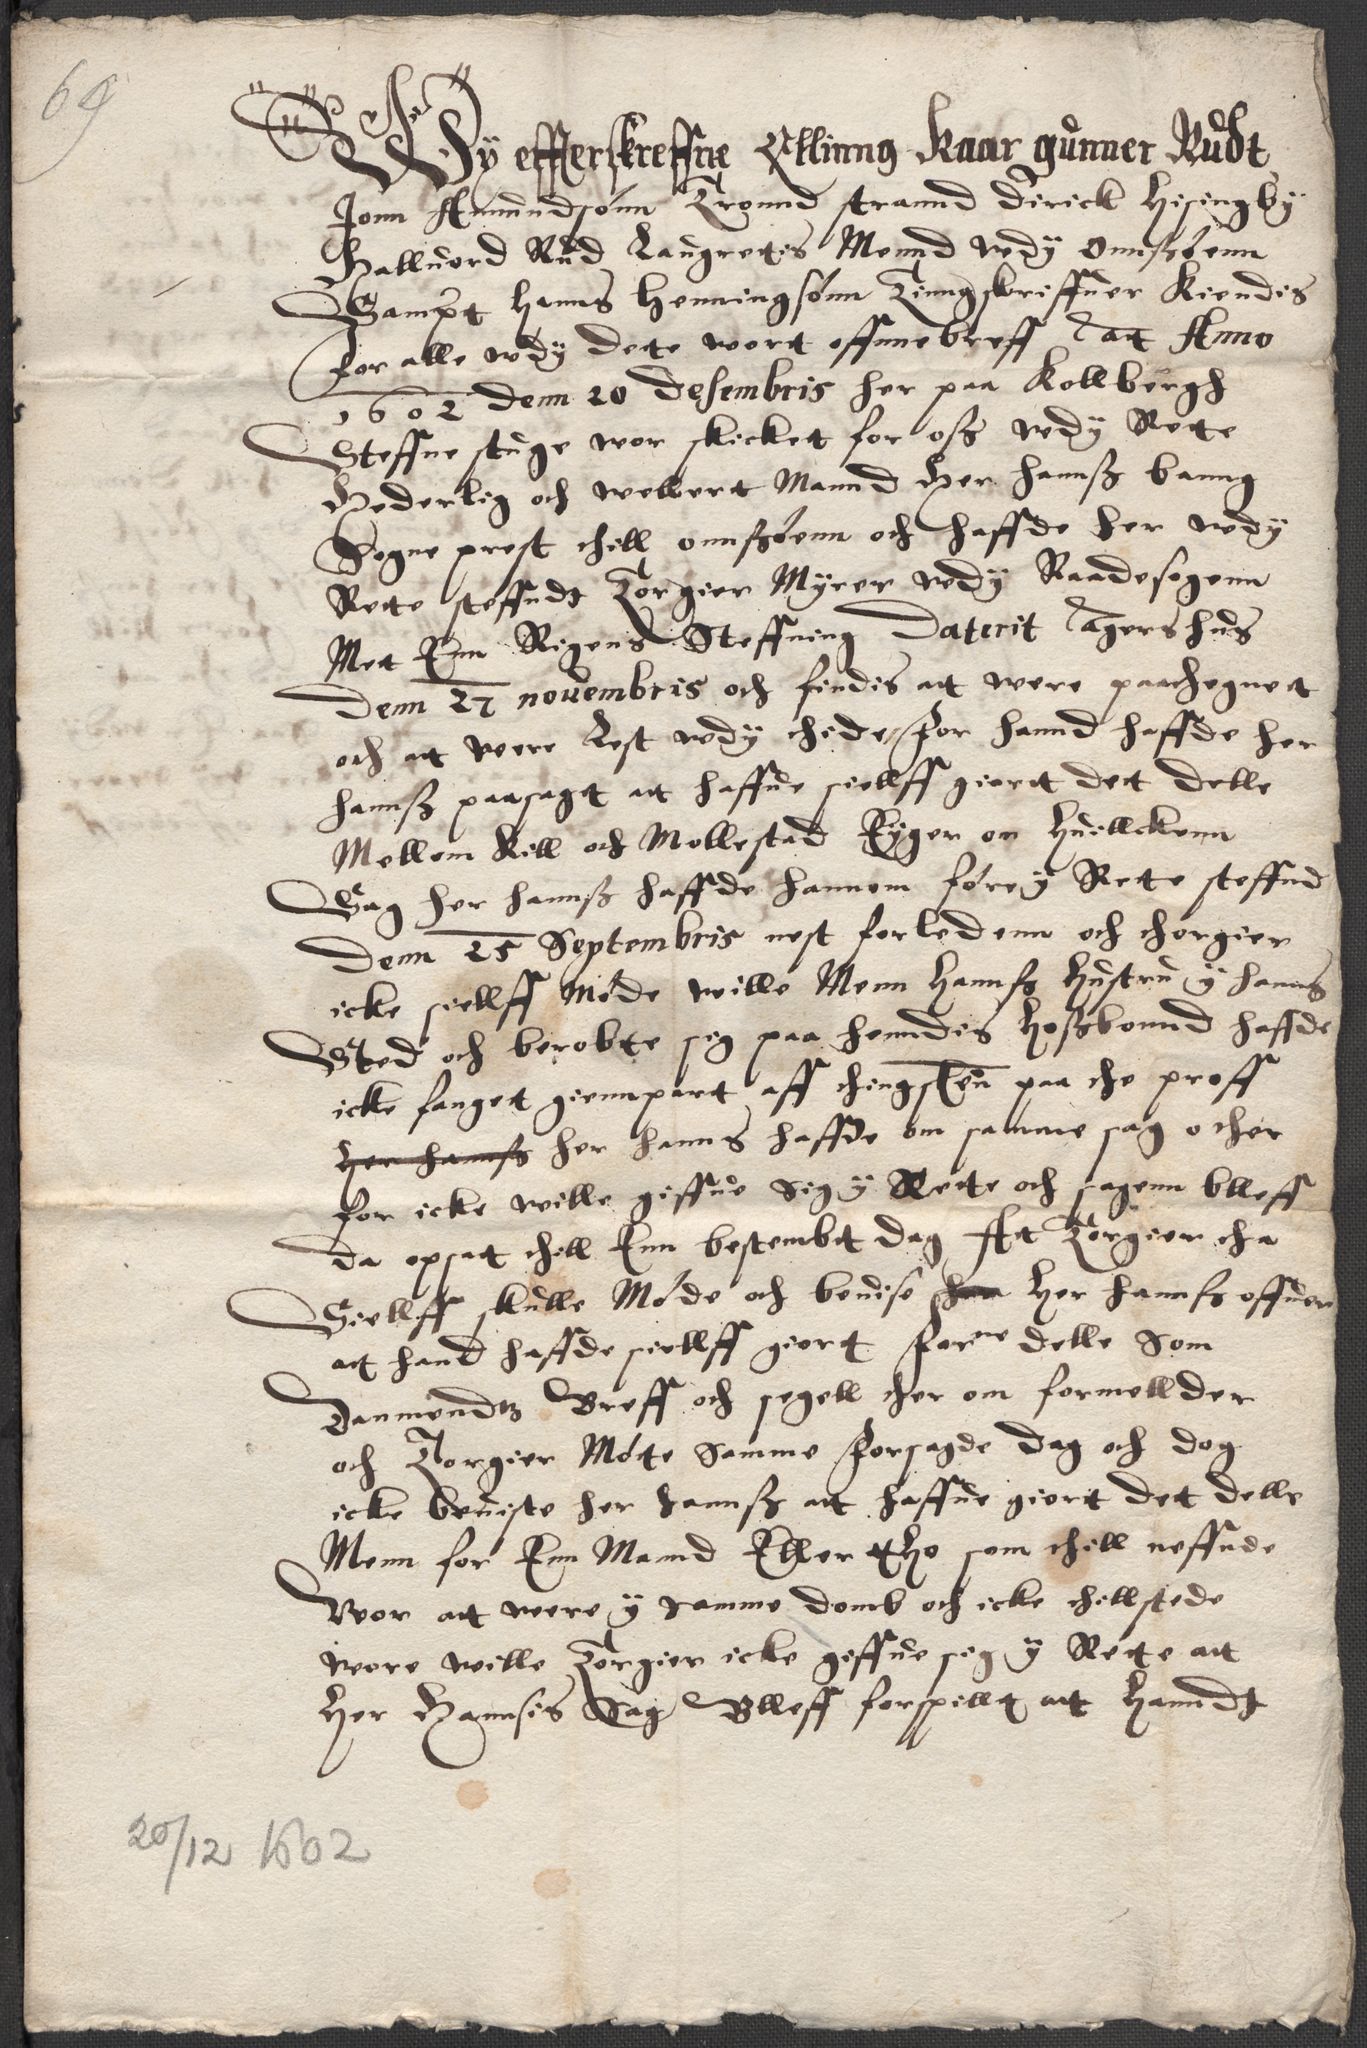 69
Wÿ effterskreffne Elling Kaar gunner Rudt
Jonn Amundsønn Tronnd strannd Dirick Hisingbÿ
Halluord Rud Laugrettis Mennd wdÿ Onnsøenn
Sampt Hanns Henningsønn Tinngskriffuer Kiendis
for alle wdÿ dete wort offnnebreff at Anno
1602 denn 20 Desembris her paa Kollbergh
Steffne stuge wor skicket for oss wdÿ Rete
Hederlig och wellert Mannd Her Hannss banng
Sogne prest thill onnssøenn och haffde her wdÿ
Rete steffndt Torgier Mÿrer wdÿ Raadesogenn
Met Enn Rigens Steffning Daterit Agershus
Denn 27 nouembris och findis att were paathegnet
och att were Lest wdÿ thide, for hannd haffde her
hannss paasagt att haffue siellff giort det delle
Mellem Kill och Mollestad Eÿger om Huillckenn
Sag her hannss haffde hannem føre ÿ Rete steffnd
Denn 25 Septembris nest forledenn och thorgier
icke siellff Møde wille Menn Hannss Hustru ÿ hanns
Sted och berobte sig paa henndis Hossbonnd haffde
icke fanget giennpart aff thingskr paa the proff
her hannss her hanns haffde om samme sag och her
for icke wille giffue sig ÿ Rette och sagenn blleff
da opsatt thill Enn bestembt dag At Torgier tha
Siellff skulle Møde och beuise han Her Hannss offuer
att hand haffde siellff giort forne delle Som
Danmendtz Breff och segell ther om formellder
och Torgier Møtte Samme forsagde dag och dog
icke beuiste her hannss att haffue giort det delle
Menn for Enn Mannd Eller tho som thill neffnde
Wor att were ÿ samme domb och icke thillstede
wore wille Torgier icke giffue sig ÿ Rette att
Her Hannsis Sag Blleff forspillt att Hanndt
20/12 1602